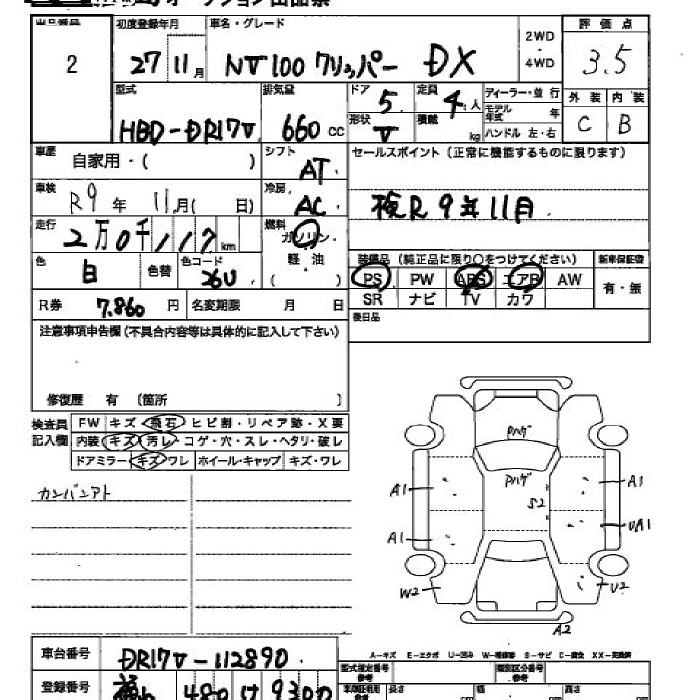 オークション出品票
出品番号 初度登録年月 車名・グレード 2WD・4WD 評価点
2 27 11月 NV100 クリッパー DX 3.5
型式 排気量 ドア 5 定員 4人 ディーラー・並行 外装 内装
モデル年式 年
HBD-DR17V 660cc 形状 V 積載 kg ハンドル 左・右 C B
車歴 自家用・( ) シフト AT セールスポイント（正常に機能するものに限ります）
車検 R9年 11月( 日) 冷房 AC 検R9年11月
走行 2万0千117km 燃料 ガソリン・軽油( )
装備品（純正品に限り○をつけてください） 新車保証書
色 白 色替 色コード 26U PS PW ABS エアB AW 有・無
R券 7.860円 名変期限 月 日 SR ナビ TV カワ
注意事項申告欄（不具合内容等は具体的に記入して下さい） 後日品
修復歴 有 〔箇所 〕
検査員記入欄 FW キズ・飛石・ヒビ割・リペア跡・X要
内装 キズ・汚レ・コゲ・穴・スレ・ヘタリ・破レ
ドアミラー キズ・ワレ ホイール・キャップ キズ・ワレ
カンバンアト
Pハゲ
Pハゲ
A1 A1
S2
A1 UA1
W2 U2
A2
A-キズ E-エクボ U-凹み W-補修跡 S-サビ C-腐食 XX-交換済
車台番号 DR17V-112890
型式指定番号 参考 類別区分番号 参考
登録番号 480 け 9300
長さ 幅 高さ